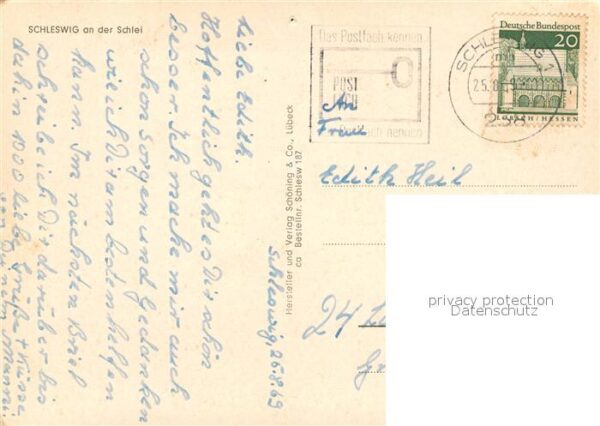 SCHLESWIG an der Schlei
Schleswig, 25.8.69
Liebe Edith.
Hoffentlich geht es Dir schon
besser. Ich mache mir auch
schon Sorgen und Gedanken
wie ich Dir am besten helfen
kann. Im nächsten Brief
schreibe ich Dir darüber bis
dahin 1000 liebe Grüße + Küsse
von Deinem Manni.
Hersteller und Verlag Schöning & Co., Lübeck
ca Bestellnr. Schlesw 187
Das Postfach kennen
POST
FACH
Postfach nennen
SCHLESWIG 1
Deutsche Bundespost
20
LORSCH / HESSEN
An
Frau
Edith Heil
24
privacy protection
Datenschutz